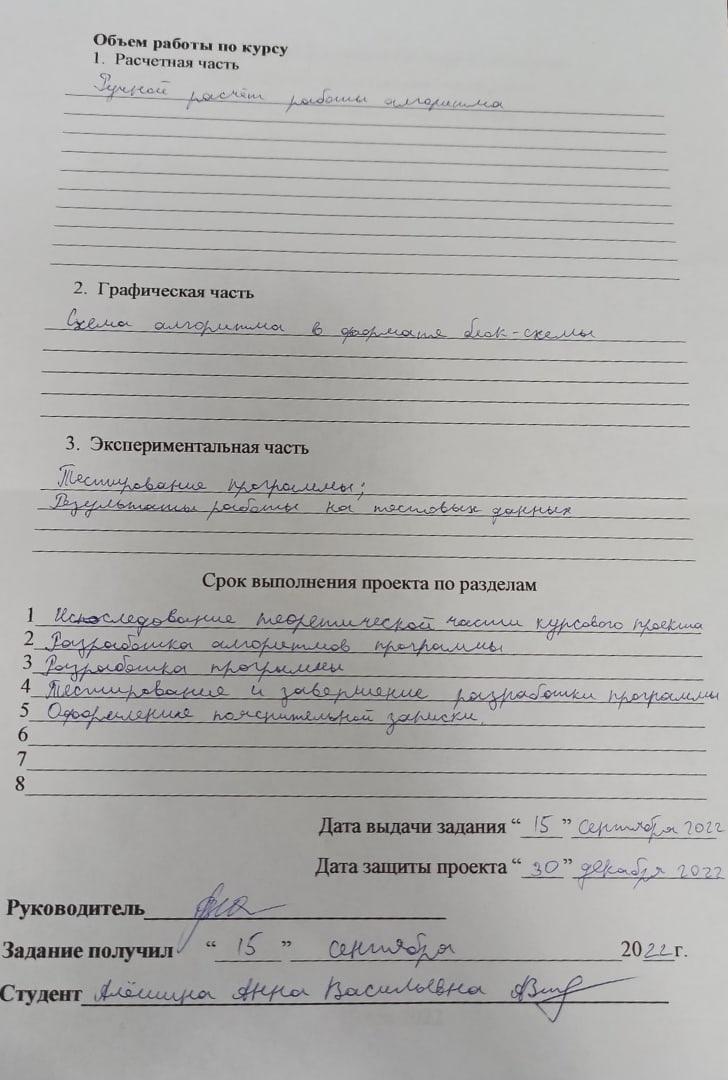 Объем работы по курсу
1. Расчетная часть
Ручной расчёт работы алгоритма
2. Графическая часть
Схема алгоритма в формате блок-схемы
3. Экспериментальная часть
Тестирование программы;
Результаты работы на тестовых данных
Срок выполнения проекта по разделам
1 Исследование теоретической части курсового проекта
2 Разработка алгоритмов программы
3 Разработка программы
4 Тестирование и завершение разработки программы
5 Оформление пояснительной записки.
6
7
8
Дата выдачи задания “ 15 ” сентября 2022
Дата защиты проекта “ 30 ” декабря 2022
Руководитель
Задание получил “ 15 ” сентября 2022г.
Студент Алёшина Анна Васильевна